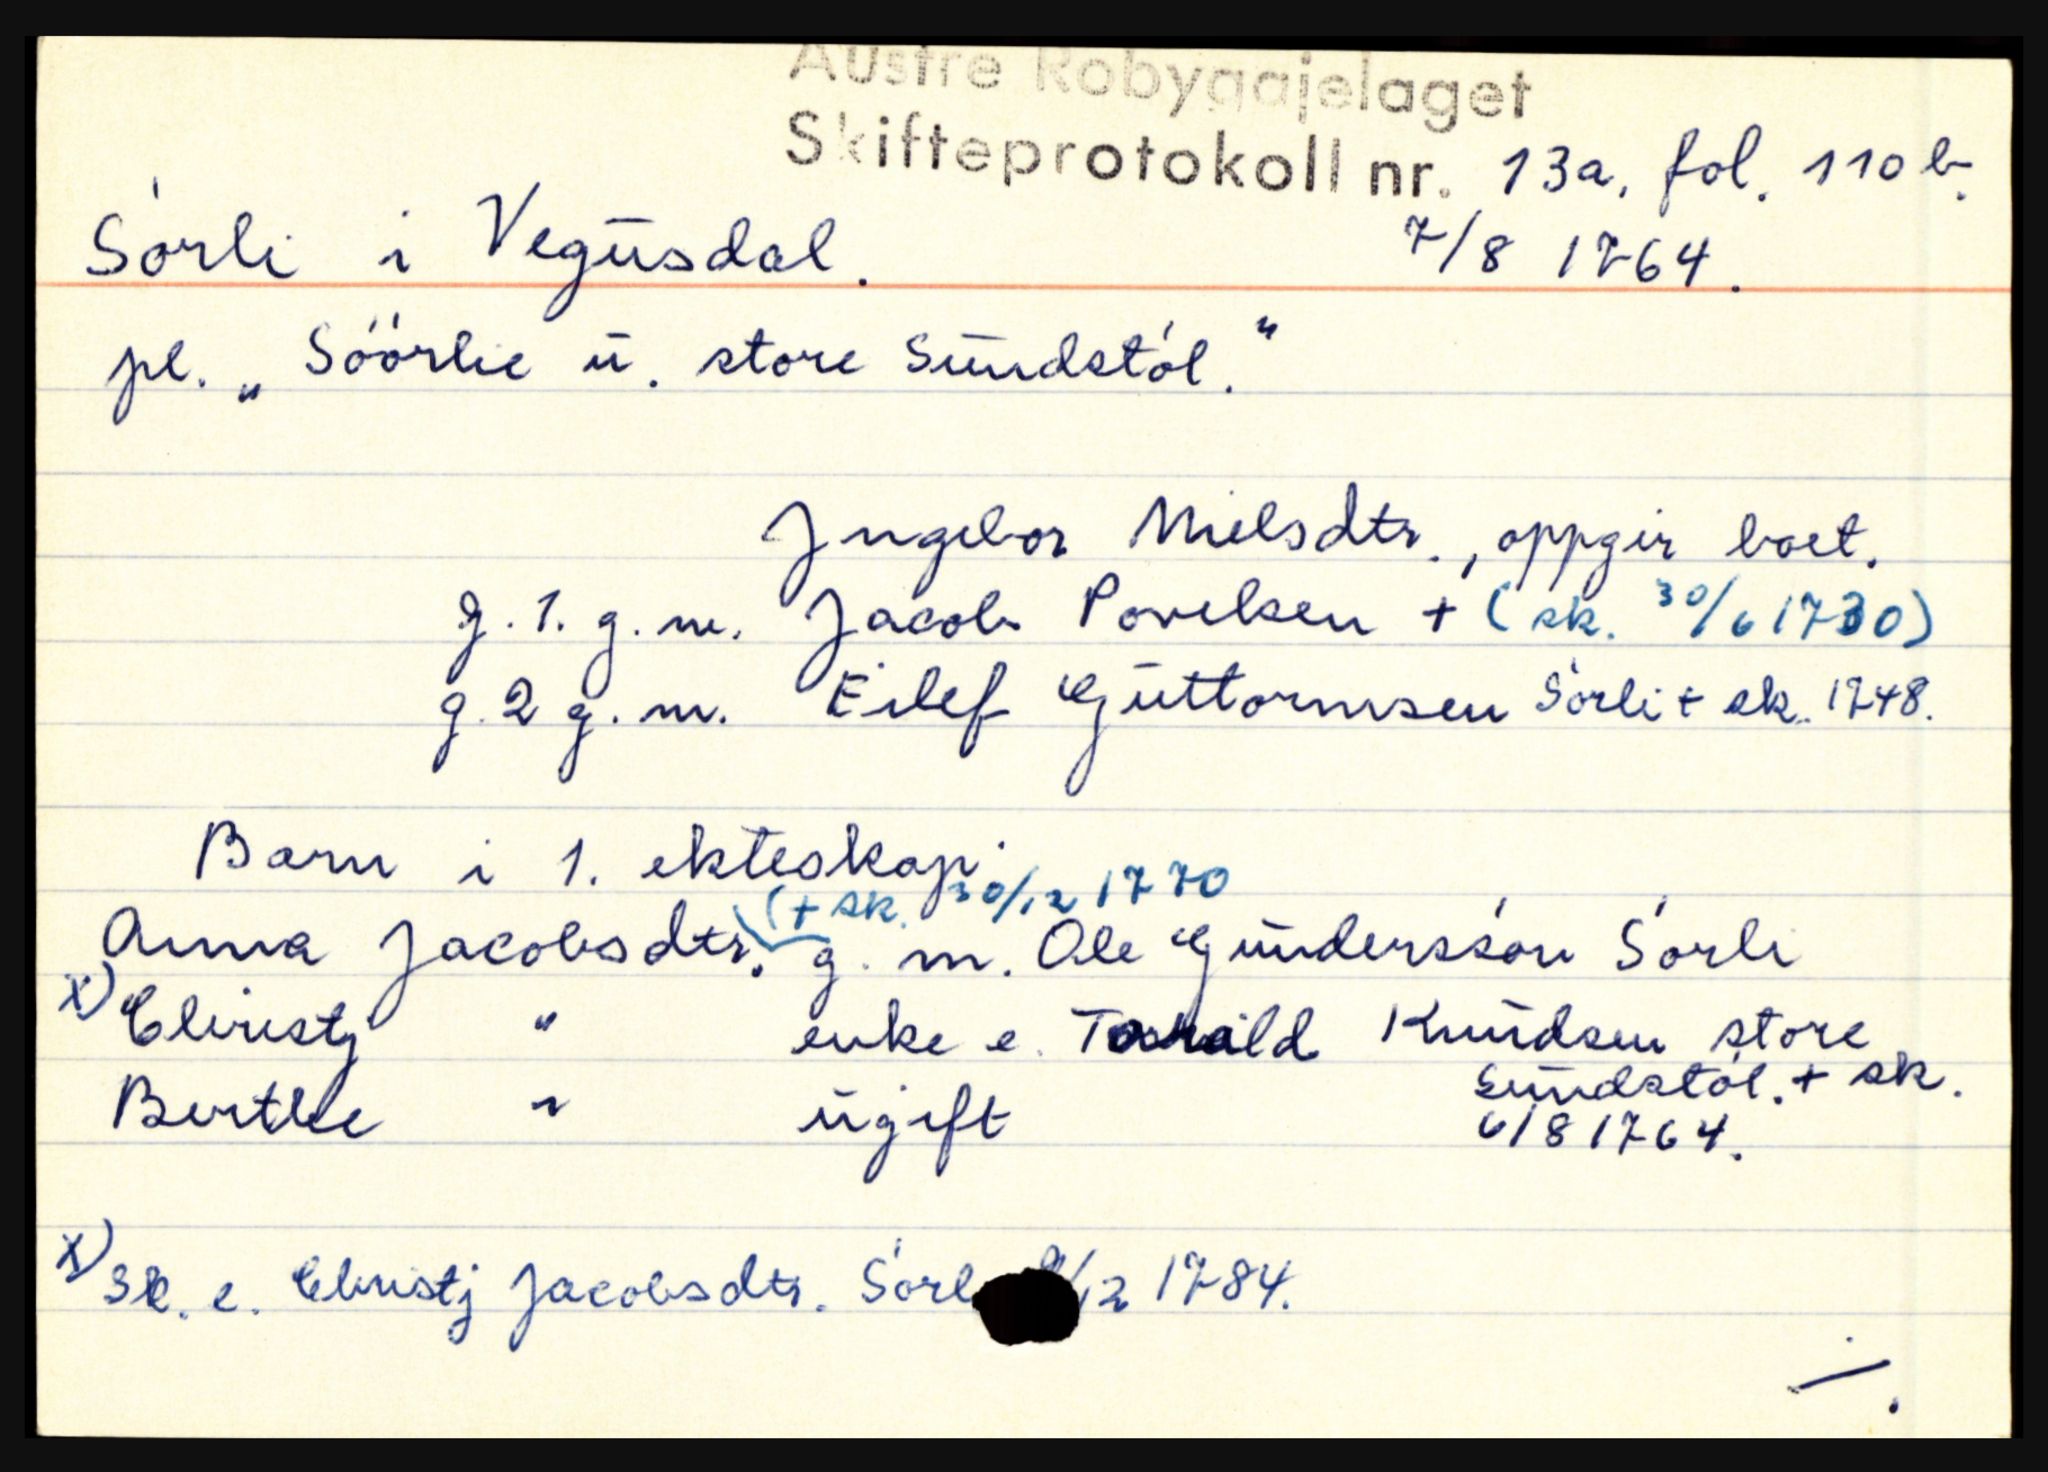 Austre Robyggjelaget
Skifteprotokoll nr. 13a, fol. 110 b.
Sórli i Vegusdal. 7/8 1764.
pl. „Sóórlie u. store Sundstól."
Jngebor Nielsdtr., oppgir boet.
g. 1. g. m. Jacob Povelsen + (sk. 30/6 1730)
g. 2 g. m. Eilef Guttormsen Sórli + sk. 1748.
Barn i 1. ekteskap:
(+ sk. 30/12 1770
Anna Jacobsdtr. g. m. Ole Gunderssón Sórli
x) Christj " enke e. Knudsen store
Sundstól. + sk.
Berthe " ugift 6/8 1764.
x) Sk. e. Christj Jacobsdtr. /12 1784.